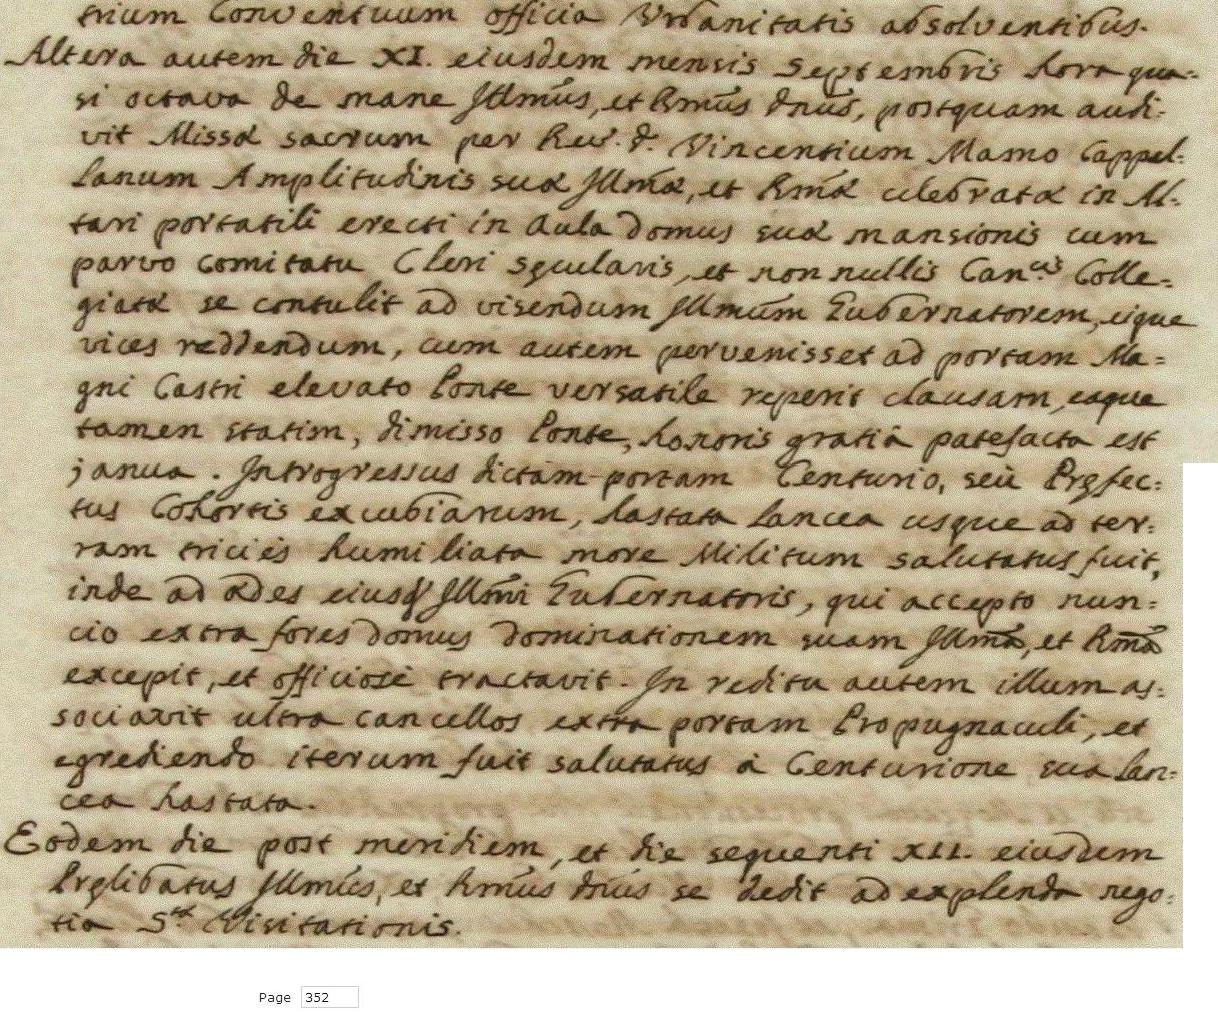 trium Conventuum officia Urbanitatis absolventibus.
Altera autem die XI. eiusdem mensis Septembris hora qua=
si octava de mane Illmûs, et Rmûs dnûs, postquam audi=
vit Missæ sacrum per Rev. d. Vincentium Mamo Cappel=
lanum Amplitudinis suæ Illmæ, et Rmæ celebratæ in Al=
tari portatili erecti in Aula domus suæ mansionis cum
parvo comitatu Cleri sęcularis, et non nullis Can.cis Colle=
giatæ se contulit ad visendum Illmûm Gubernatorem, eique
vices reddendum, cum autem pervenisset ad portam Ma=
gni Castri elevato Ponte versatile reperit clausam, eaque
tamen statim, dimisso Ponte, honoris gratiâ patefacta est
janua. Introgressus dictam portam Centurio, seù Pręfec=
tus Cohortis excubiarum, hastata lancea usque ad ter=
ram triciès humiliata more Militum salutatus fuit,
inde ad ædes eiusd Illmi Gubernatoris, qui accepto nun=
cio extra fores domus dominationem suam Illmâ, et Rmâ
excepit, et officiosè tractavit. In reditu autem illum as=
sociavit ultra cancellos extra portam Propugnaculi, et
egrediendo iterum fuit salutatus à Centurione sua lan=
cea hastata.
Eodem die post meridiem, et die sequenti XII. eiusdem
Pręlibatus Illmûs, et Rmûs dnûs se dedit ad explenda nego=
tia S.tæ Visitationis.
Page 352